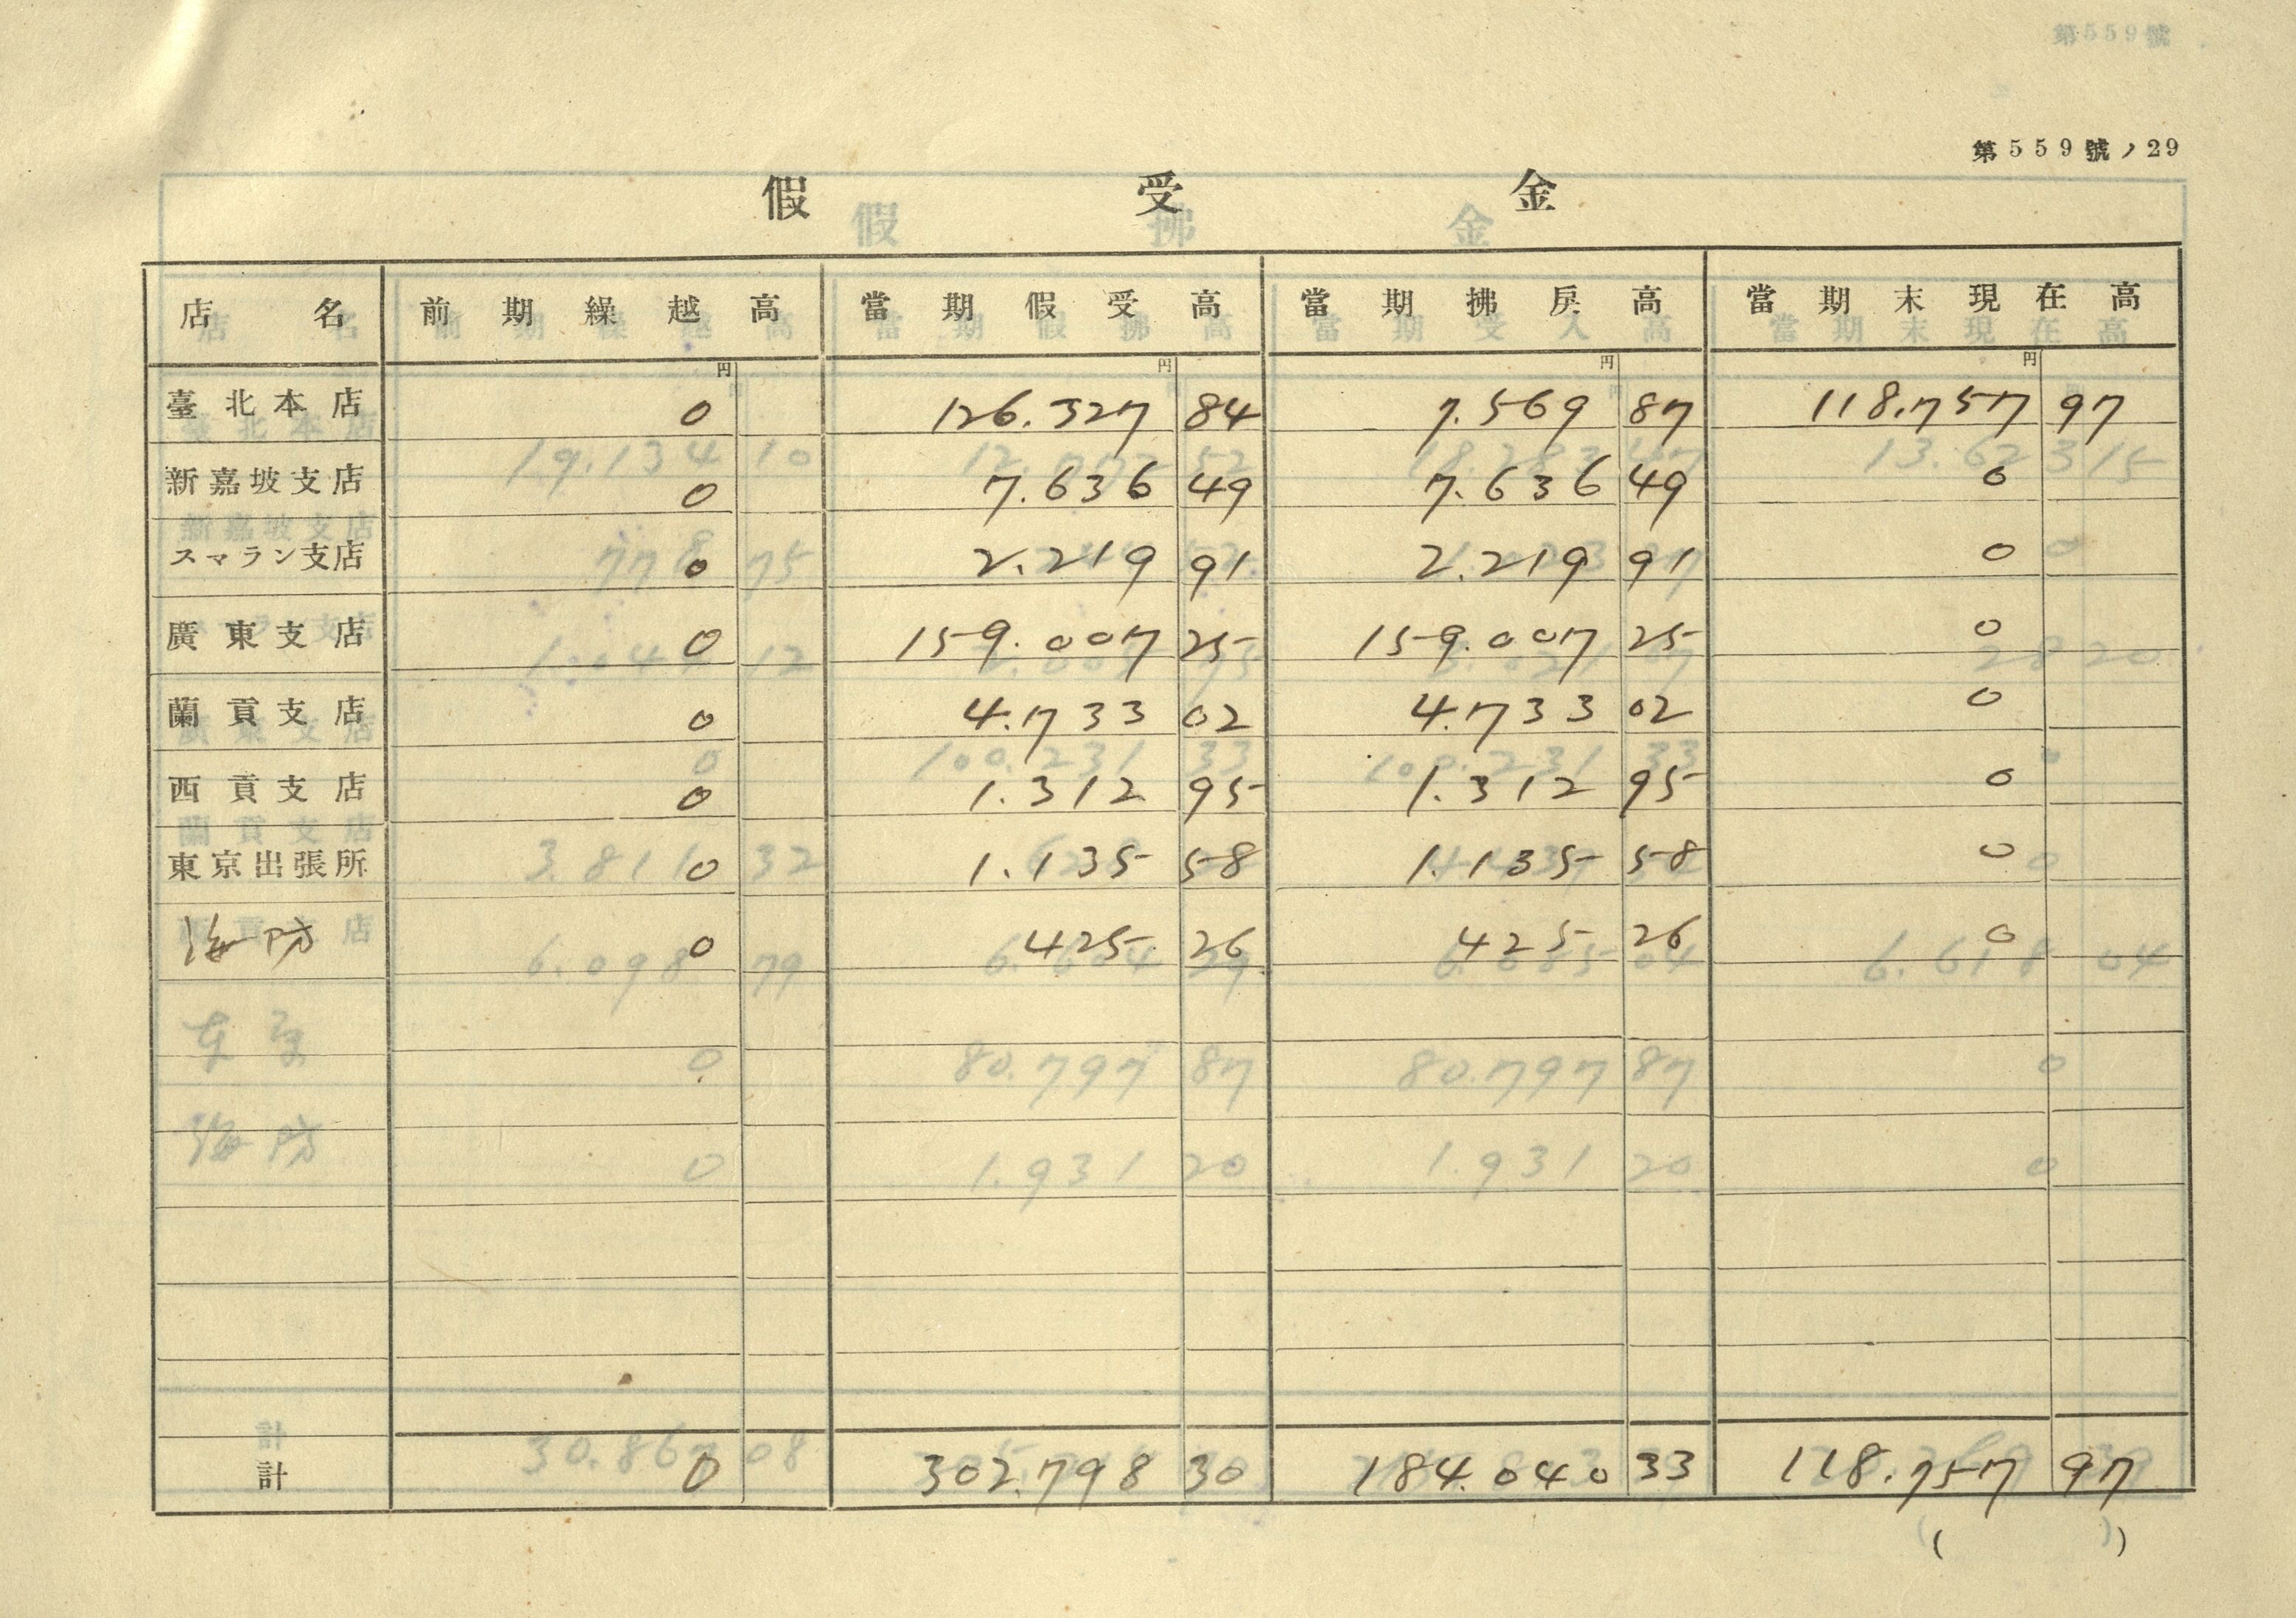 第559號ノ29
假受金
店名 前期繰越高 當期假受高 當期拂戻高 當期末現在高
円 円 円 円
臺北本店 0 126.327 84 7.569 87 118.757 97
新嘉坡支店 0 7.636 49 7.636 49 0
スマラン支店 0 2.219 91 2.219 91 0
廣東支店 0 159.007 25 159.007 25 0
蘭貢支店 0 4.733 02 4.733 02 0
西貢支店 0 1.312 95 1.312 95 0
東京出張所 0 1.135 58 1.135 58 0
海防 0 425 26 425 26 0
計 0 302.798 30 184.040 33 118.757 97
( )